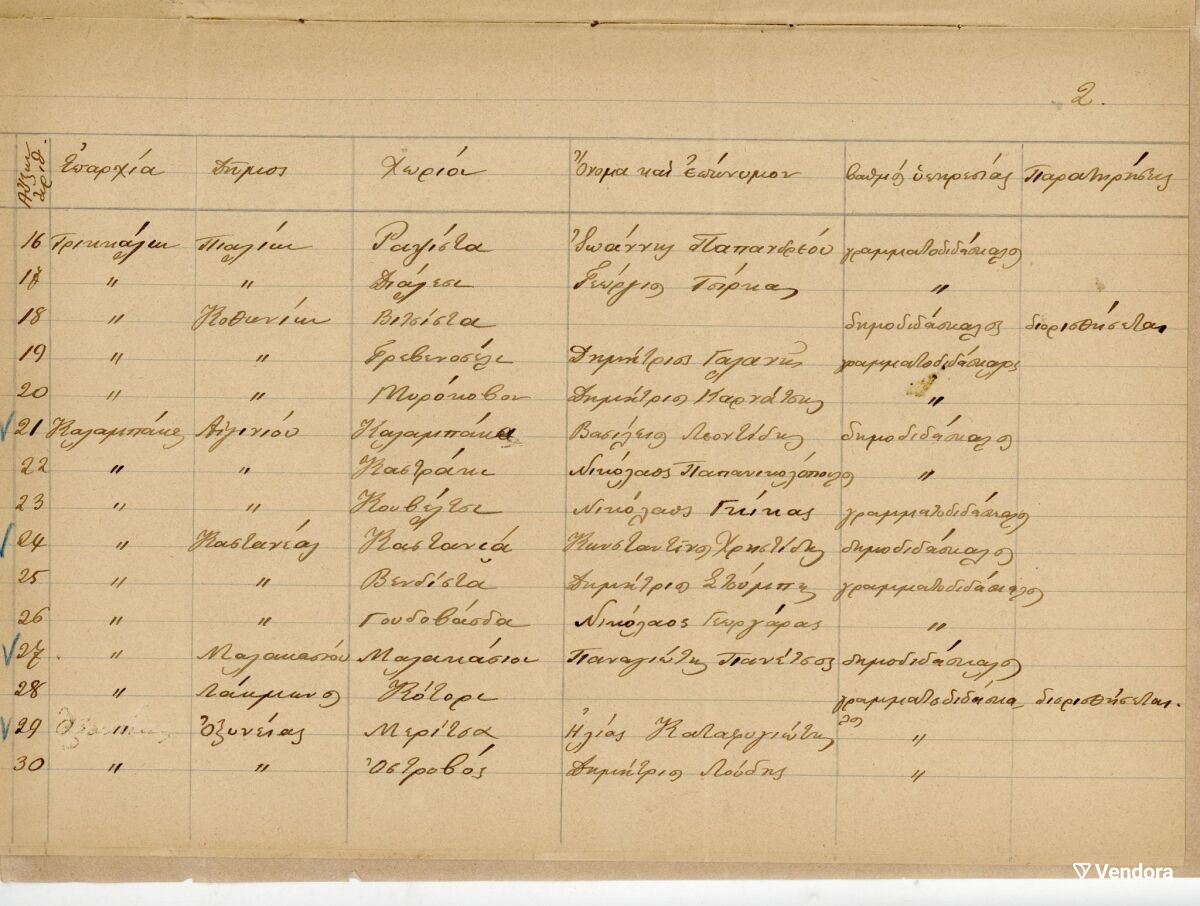 2.
Αὔξων ἀριθ. Ἐπαρχία Δῆμος Χωρίον Ὄνομα καὶ Ἐπώνυμον Βαθμὸς ὑπηρεσίας Παρατηρήσεις
16 Τρικκάλων Πιαλίων Ραξίστα Ἰωάννης Παπανδρέου γραμματοδιδάσκαλος
17 " " Διάλεσι Γεώργιος Τσίρκας "
18 " Κοθωνίων Βιτσίστα δημοδιδάσκαλος διορισθήσεται
19 " " Γρεβενοσέλι Δημήτριος Γαλάνης γραμματοδιδάσκαλος
20 " " Μυρόκοβον Δημήτριος Καρνάτσης "
21 Καλαμπάκας Αἰγινίου Καλαμπάκα Βασίλειος Λεοντίδης δημοδιδάσκαλος
22 " " Καστράκι Νικόλαος Παπανικολόπουλος "
23 " " Κουβέλτσι Νικόλαος Γκίκας γραμματοδιδάσκαλος
24 " Καστανέας Καστανιά Κωνσταντῖνος Χρηστίδης δημοδιδάσκαλος
25 " " Βενδίστα Δημήτριος Στούμπης γραμματοδιδάσκαλος
26 " " Γουδοβάσδα Νικόλαος Γεωργάρας "
27 " Μαλακασίου Μαλακάσιον Παναγιώτης Πανέτσος δημοδιδάσκαλος
28 " Λάκμωνος Κότορι γραμματοδιδάσκαλος διορισθήσεται.
29 " Ὀξυνείας Μερίτσα Ἠλίας Καταφυγιώτης "
30 " " Ὀστροβός Δημήτριος Λούδης "
Vendora